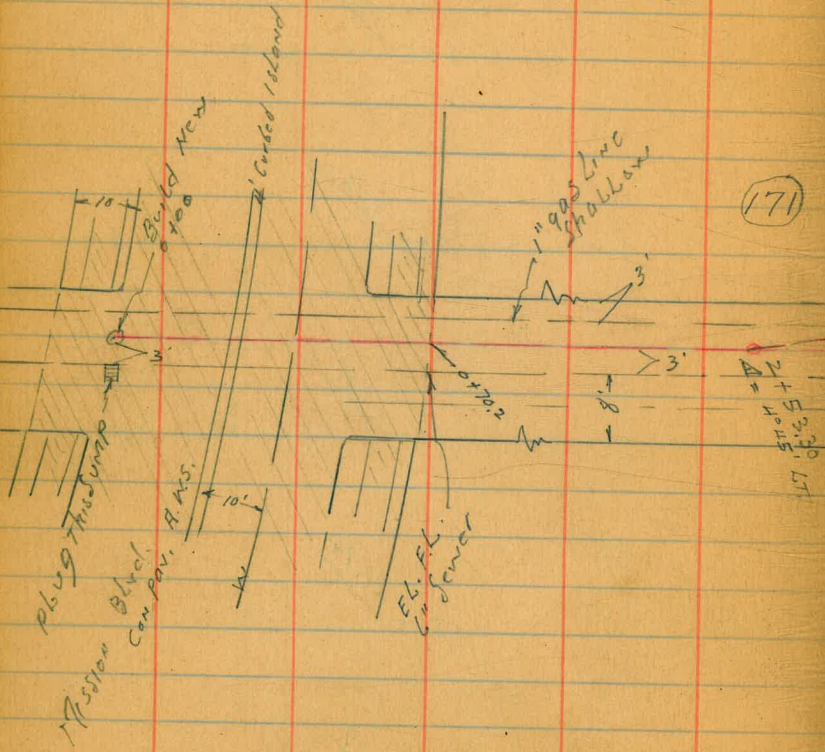 10
Build New
0+00
4' Curbed Island
1" gas Line
Shallow
171
3'
3'
3'
8'
0+70.2
2+53.30
Δ = 4°45' LT
Plug This Sump
10'
Mission Blvd.
Con Pav. A.W.S.
EL. F.L.
6" Sewer